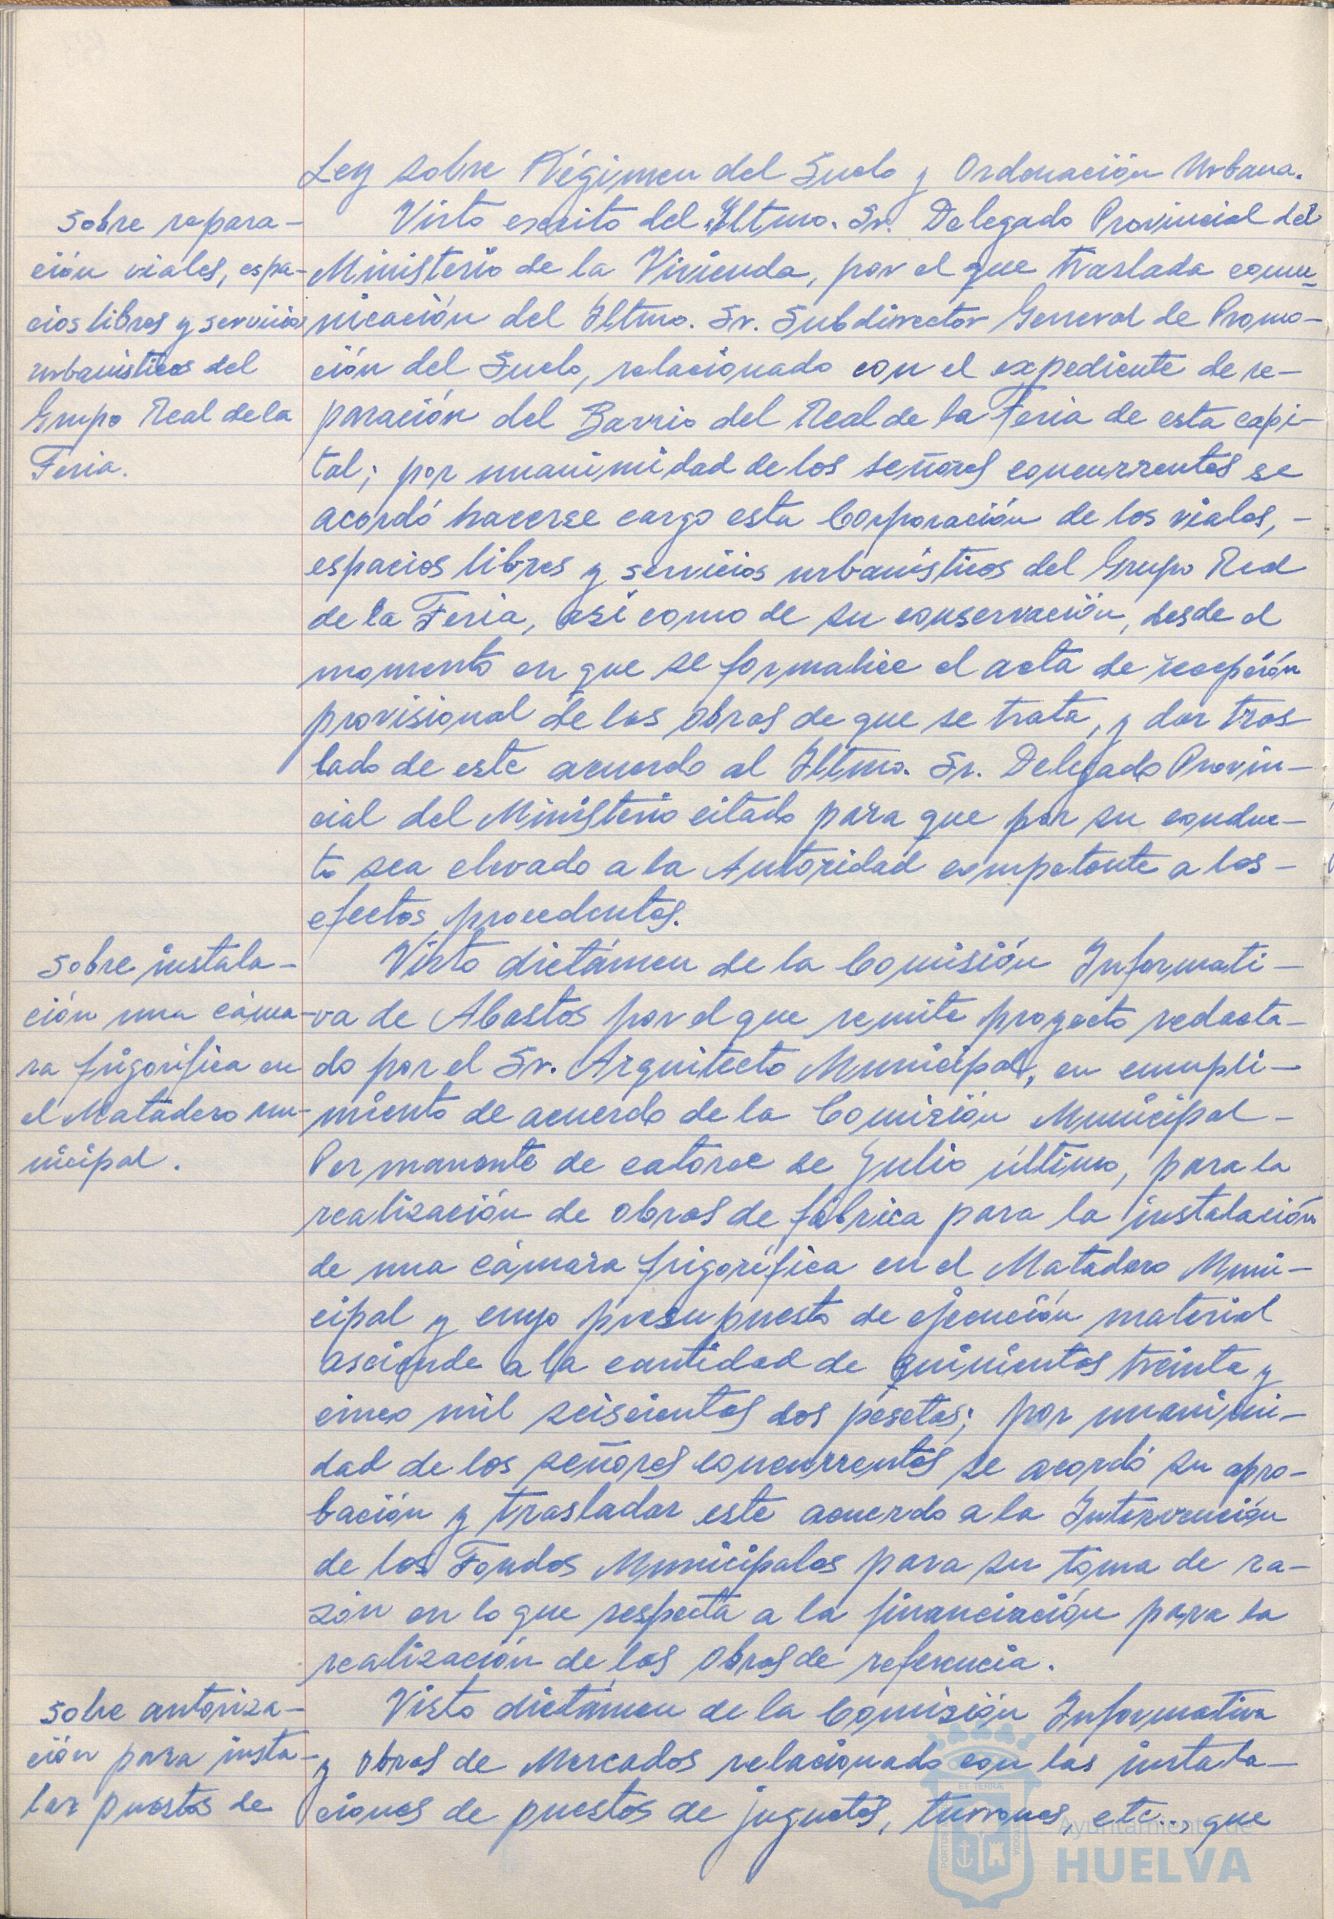 Ley sobre Régimen del Suelo y Ordenación Urbana.
Sobre repara-
ción viales, espa-
cios libres y servicios
urbanísticos del
Grupo Real de la
Feria.
Visto escrito del Iltmo. Sr. Delegado Provincial del
Ministerio de la Vivienda, por el que traslada comu-
nicación del Iltmo. Sr. Subdirector General de Promo-
ción del Suelo, relacionado con el expediente de re-
paración del Barrio del Real de la Feria de esta capi-
tal; por unanimidad de los señores concurrentes se
acordó hacerse cargo esta Corporación de los viales, -
espacios libres y servicios urbanísticos del Grupo Real
de la Feria, así como de su conservación, desde el
momento en que se formalice el acta de recepción
provisional de las obras de que se trata, y dar tras
lado de este acuerdo al Iltmo. Sr. Delegado Provin-
cial del Ministerio citado para que por su conduc-
to sea elevado a la Autoridad competente a los -
efectos procedentes.
Sobre instala-
ción una cáma-
ra frigorífica en
el Matadero mu-
nicipal.
Visto dictámen de la Comisión Informati-
va de Abastos por el que remite proyecto redacta-
do por el Sr. Arquitecto Municipal, en cumpli-
miento de acuerdo de la Comisión Municipal -
Permanente de catorce de Julio último, para la
realización de obras de fábrica para la instalación
de una cámara frigorífica en el Matadero Muni-
cipal y cuyo presupuesto de ejecución material
asciende a la cantidad de quinientas treinta y
cinco mil seiscientas dos pesetas; por unanimi-
dad de los señores concurrentes se acordó su apro-
bación y trasladar este acuerdo a la Intervención
de los Fondos Municipales para su toma de ra-
zón en lo que respecta a la financiación para la
realización de las obras de referencia.
Sobre autoriza-
ción para insta-
lar puestos de
Visto dictámen de la Comisión Informativa
y obras de Mercados relacionado con las instala-
ciones de puestos de juguetes, turrones, etc..., que
Ayuntamiento de
HUELVA